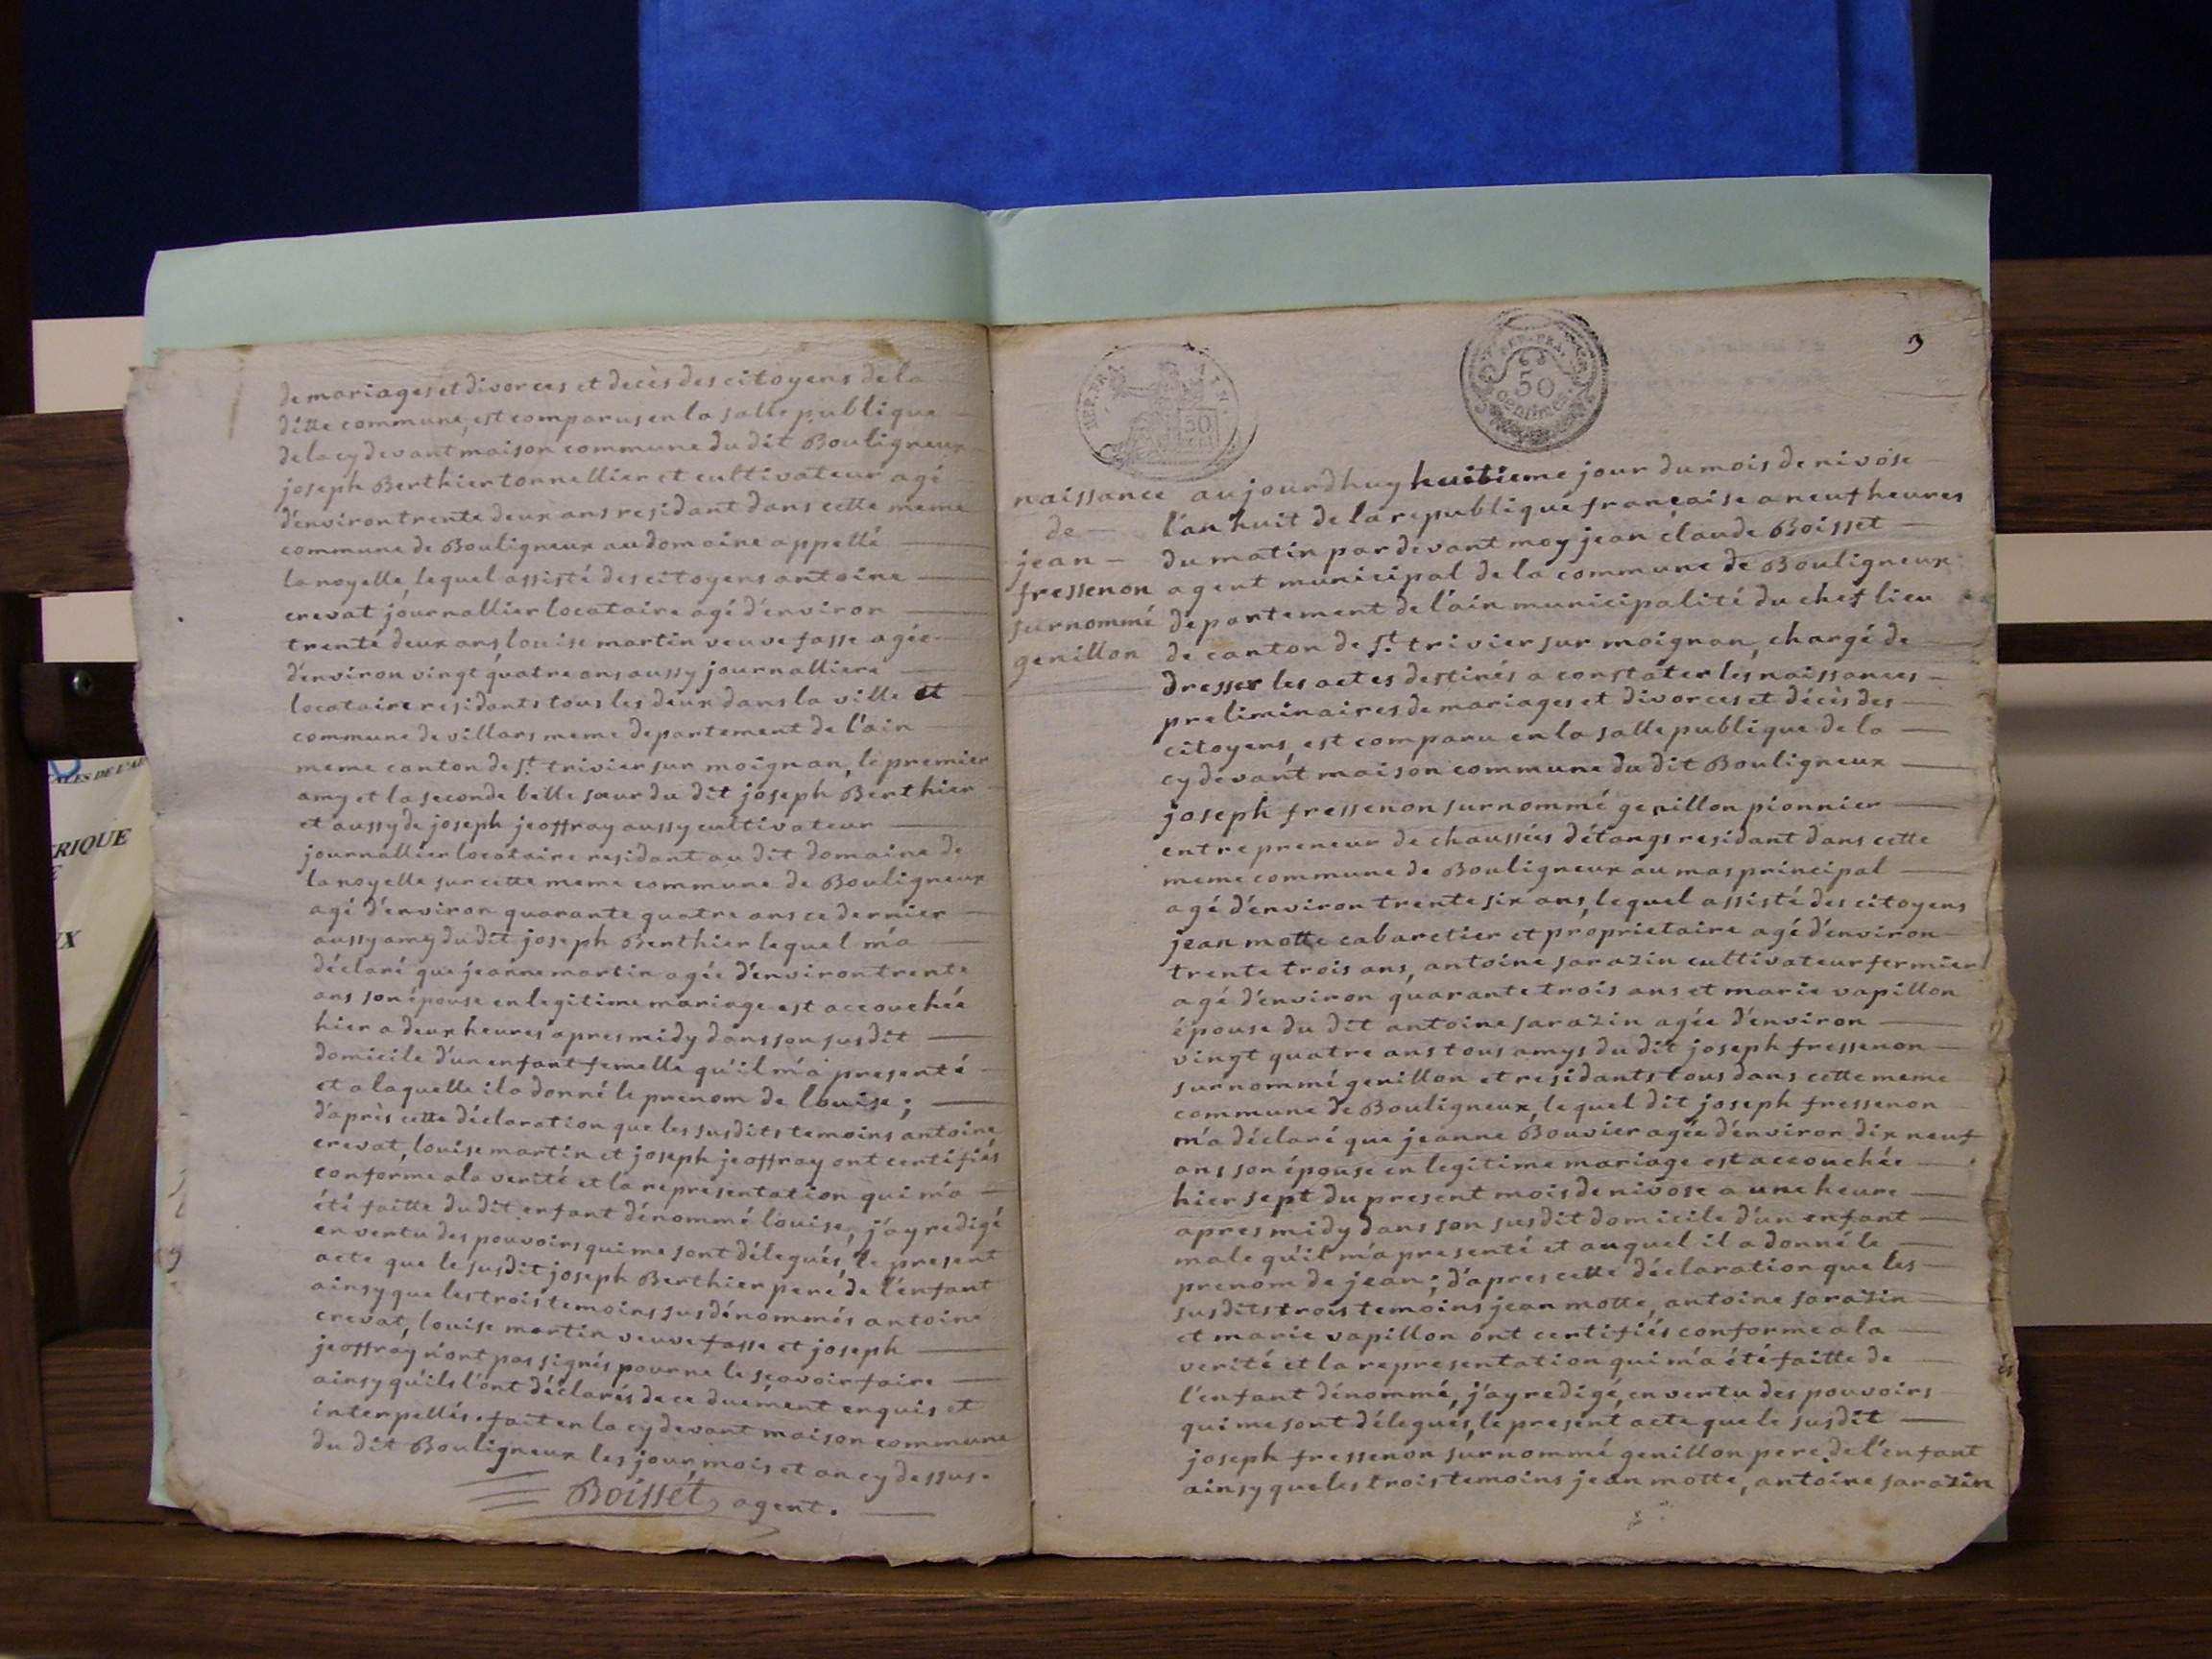 de mariages et divorces et decès des citoyens de la
ditte commune, est comparus en la salle publique
de la cy devant maison commune du dit Bouligneux
joseph Berthier tonnellier et cultivateur agé
d'environ trente deux ans residant dans cette meme
commune de Bouligneux au domaine appellé
la noyelle, lequel assisté des citoyens antoine
crevat journallier locataire agé d'environ
trente deux ans, louise martin veuve fasse agée
d'environ vingt quatre ans aussy journalliere
locataire residants tous les deux dans la ville et
commune de villars meme departement de l'ain
meme canton de St. trivier sur moignan, le premier
amy et la seconde belle sœur du dit joseph Berthier
et aussy de joseph jeoffray aussy cultivateur
journallier locataire residant au dit domaine de
la noyelle sur cette meme commune de Bouligneux
agé d'environ quarante quatre ans ce dernier
aussy amy du dit joseph Berthier lequel m'a
déclaré que jeanne martin agée d'environ trente
ans son épouse en legitime mariage est accouchée
hier a deux heures apres midy dans son susdit
domicile d'un enfant femelle qu'il m'a presenté
et a laquelle il a donné le prenom de louise ;
d'après cette déclaration que les susdits temoins antoine
crevat, louise martin et joseph jeoffray ont certifiés
conforme a la verité et la representation qui m'a
été faitte du dit enfant dénommé louise, j'ay redigé
en vertu des pouvoirs qui me sont délegués, le present
acte que le susdit joseph Berthier pere de l'enfant
ainsy que les trois temoins susdénommés antoine
crevat, louise martin veuve fasse et joseph
jeoffray n'ont pas signés pour ne le sçavoir faire
ainsy qu'ils l'ont déclarés de ce duement enquis et
interpellés. fait en la cy devant maison commune
du dit Bouligneux les jour, mois et an cy dessus.
Boisset, agent.
3
REP. FRA.
50
REP. FRA.
50
centimes
naissance
de
jean
fressenon
surnommé
genillon
aujourdhuy huitieme jour du mois de nivôse
l'an huit de la republique française a neuf heures
du matin par devant moy jean claude Boisset
agent municipal de la commune de Bouligneux
departement de l'ain municipalité du chef lieu
de canton de St. trivier sur moignan, chargé de
dresser les actes destinés a constater les naissances
preliminaires de mariages et divorces et décès des
citoyens, est comparu en la salle publique de la
cy devant maison commune du dit Bouligneux
joseph fressenon surnommé genillon pionnier
entrepreneur de chaussées d'étangs residant dans cette
meme commune de Bouligneux au mas principal
agé d'environ trente six ans, lequel assisté des citoyens
jean motte cabaretier et proprietaire agé d'environ
trente trois ans, antoine sarazin cultivateur fermier
agé d'environ quarante trois ans et marie vapillon
épouse du dit antoine sarazin agée d'environ
vingt quatre ans tous amys du dit joseph fressenon
surnommé genillon et residants tous dans cette meme
commune de Bouligneux, lequel dit joseph fressenon
m'a déclaré que jeanne Bouvier agée d'environ dix neuf
ans son épouse en legitime mariage est accouchée
hier sept du present mois de nivose a une heure
apres midy dans son susdit domicile d'un enfant
male qu'il m'a presenté et auquel il a donné le
prenom de jean ; d'apres cette déclaration que les
susdits trois temoins jean motte, antoine sarazin
et marie vapillon ont certifiés conforme a la
verité et la representation qui m'a été faitte de
l'enfant dénommé, j'ay redigé, en vertu des pouvoirs
qui me sont délegués, le present acte que le susdit
joseph fressenon surnommé genillon pere de l'enfant
ainsy que les trois temoins jean motte, antoine sarazin
RIQUE